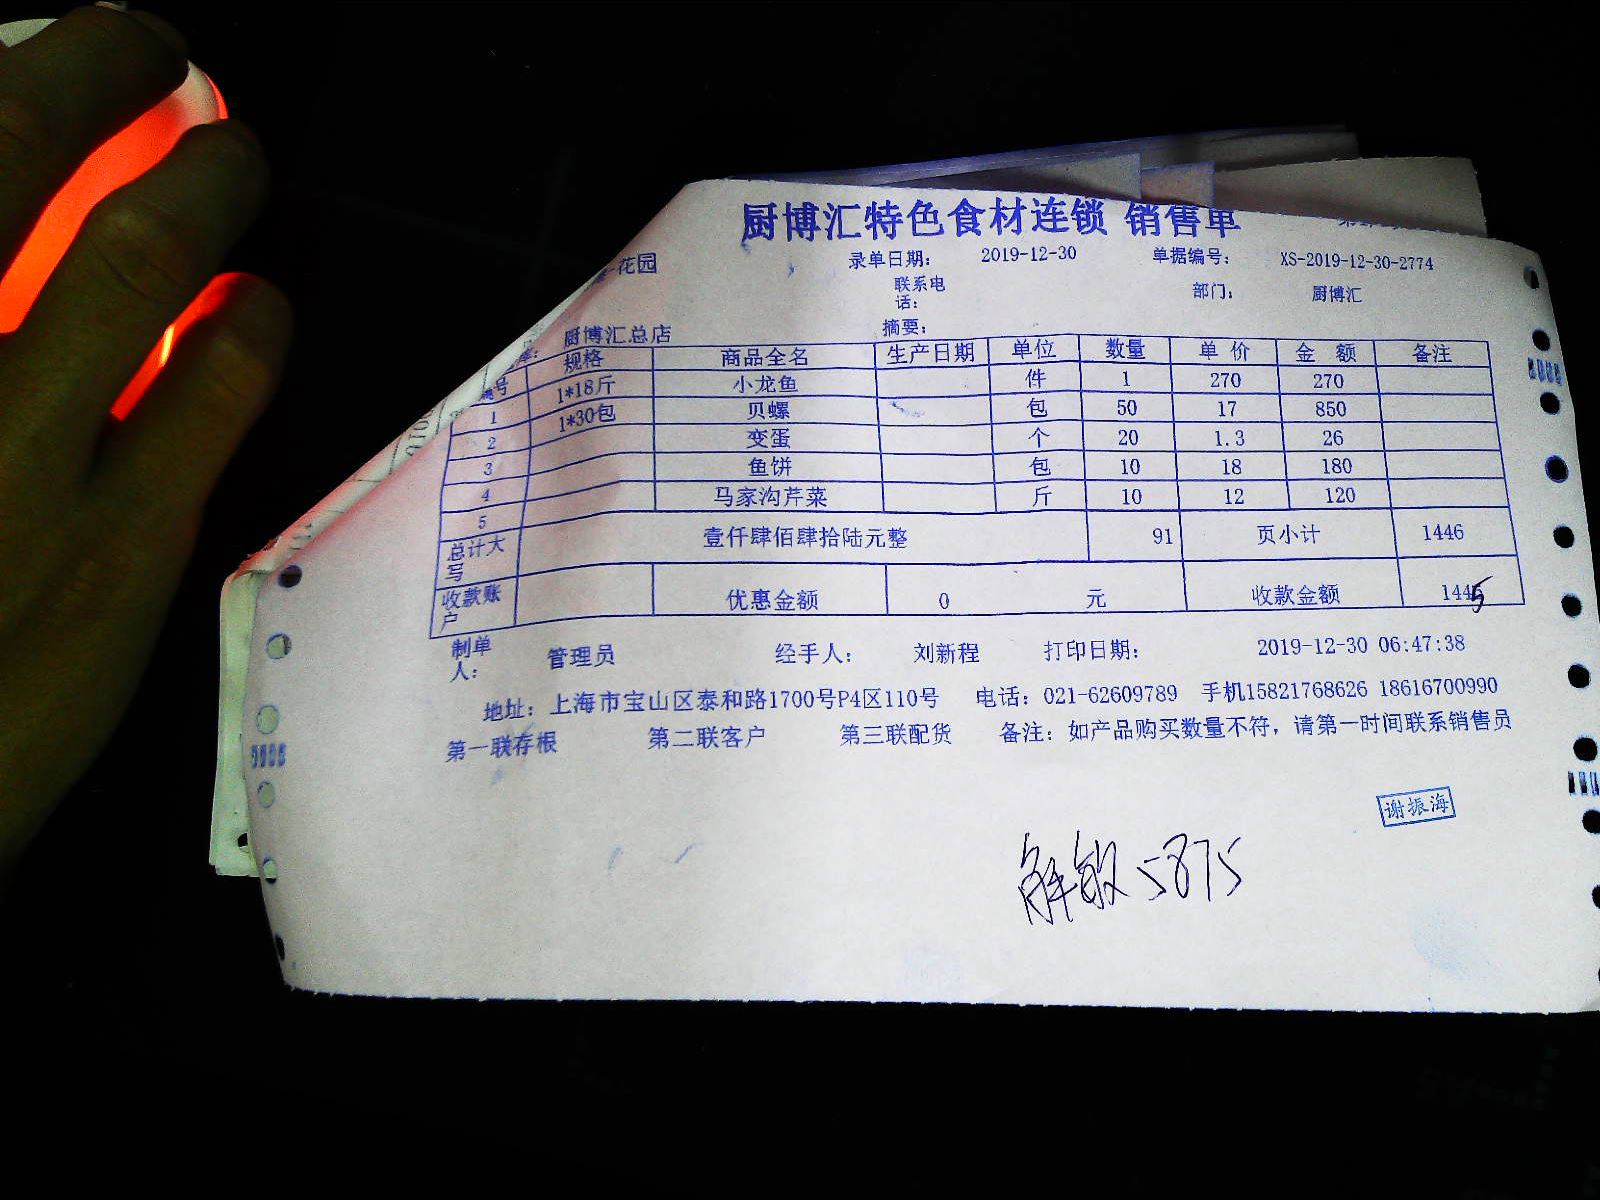 厨博汇特色食材连锁 销售单
花园 录单日期: 2019-12-30 单据编号: XS-2019-12-30-2774
联系电话: 部门: 厨博汇
库: 厨博汇总店 摘要:
编号 规格 商品全名 生产日期 单位 数量 单价 金额 备注
1 1*18斤 小龙鱼 件 1 270 270
2 1*30包 贝螺 包 50 17 850
3 变蛋 个 20 1.3 26
4 鱼饼 包 10 18 180
5 马家沟芹菜 斤 10 12 120
总计大写 壹仟肆佰肆拾陆元整 91 页小计 1446
收款账户 优惠金额 0 元 收款金额 1445
制单人: 管理员 经手人: 刘新程 打印日期: 2019-12-30 06:47:38
地址: 上海市宝山区泰和路1700号P4区110号 电话: 021-62609789 手机15821768626 18616700990
第一联存根 第二联客户 第三联配货 备注: 如产品购买数量不符, 请第一时间联系销售员
谢振海
解敏 5875